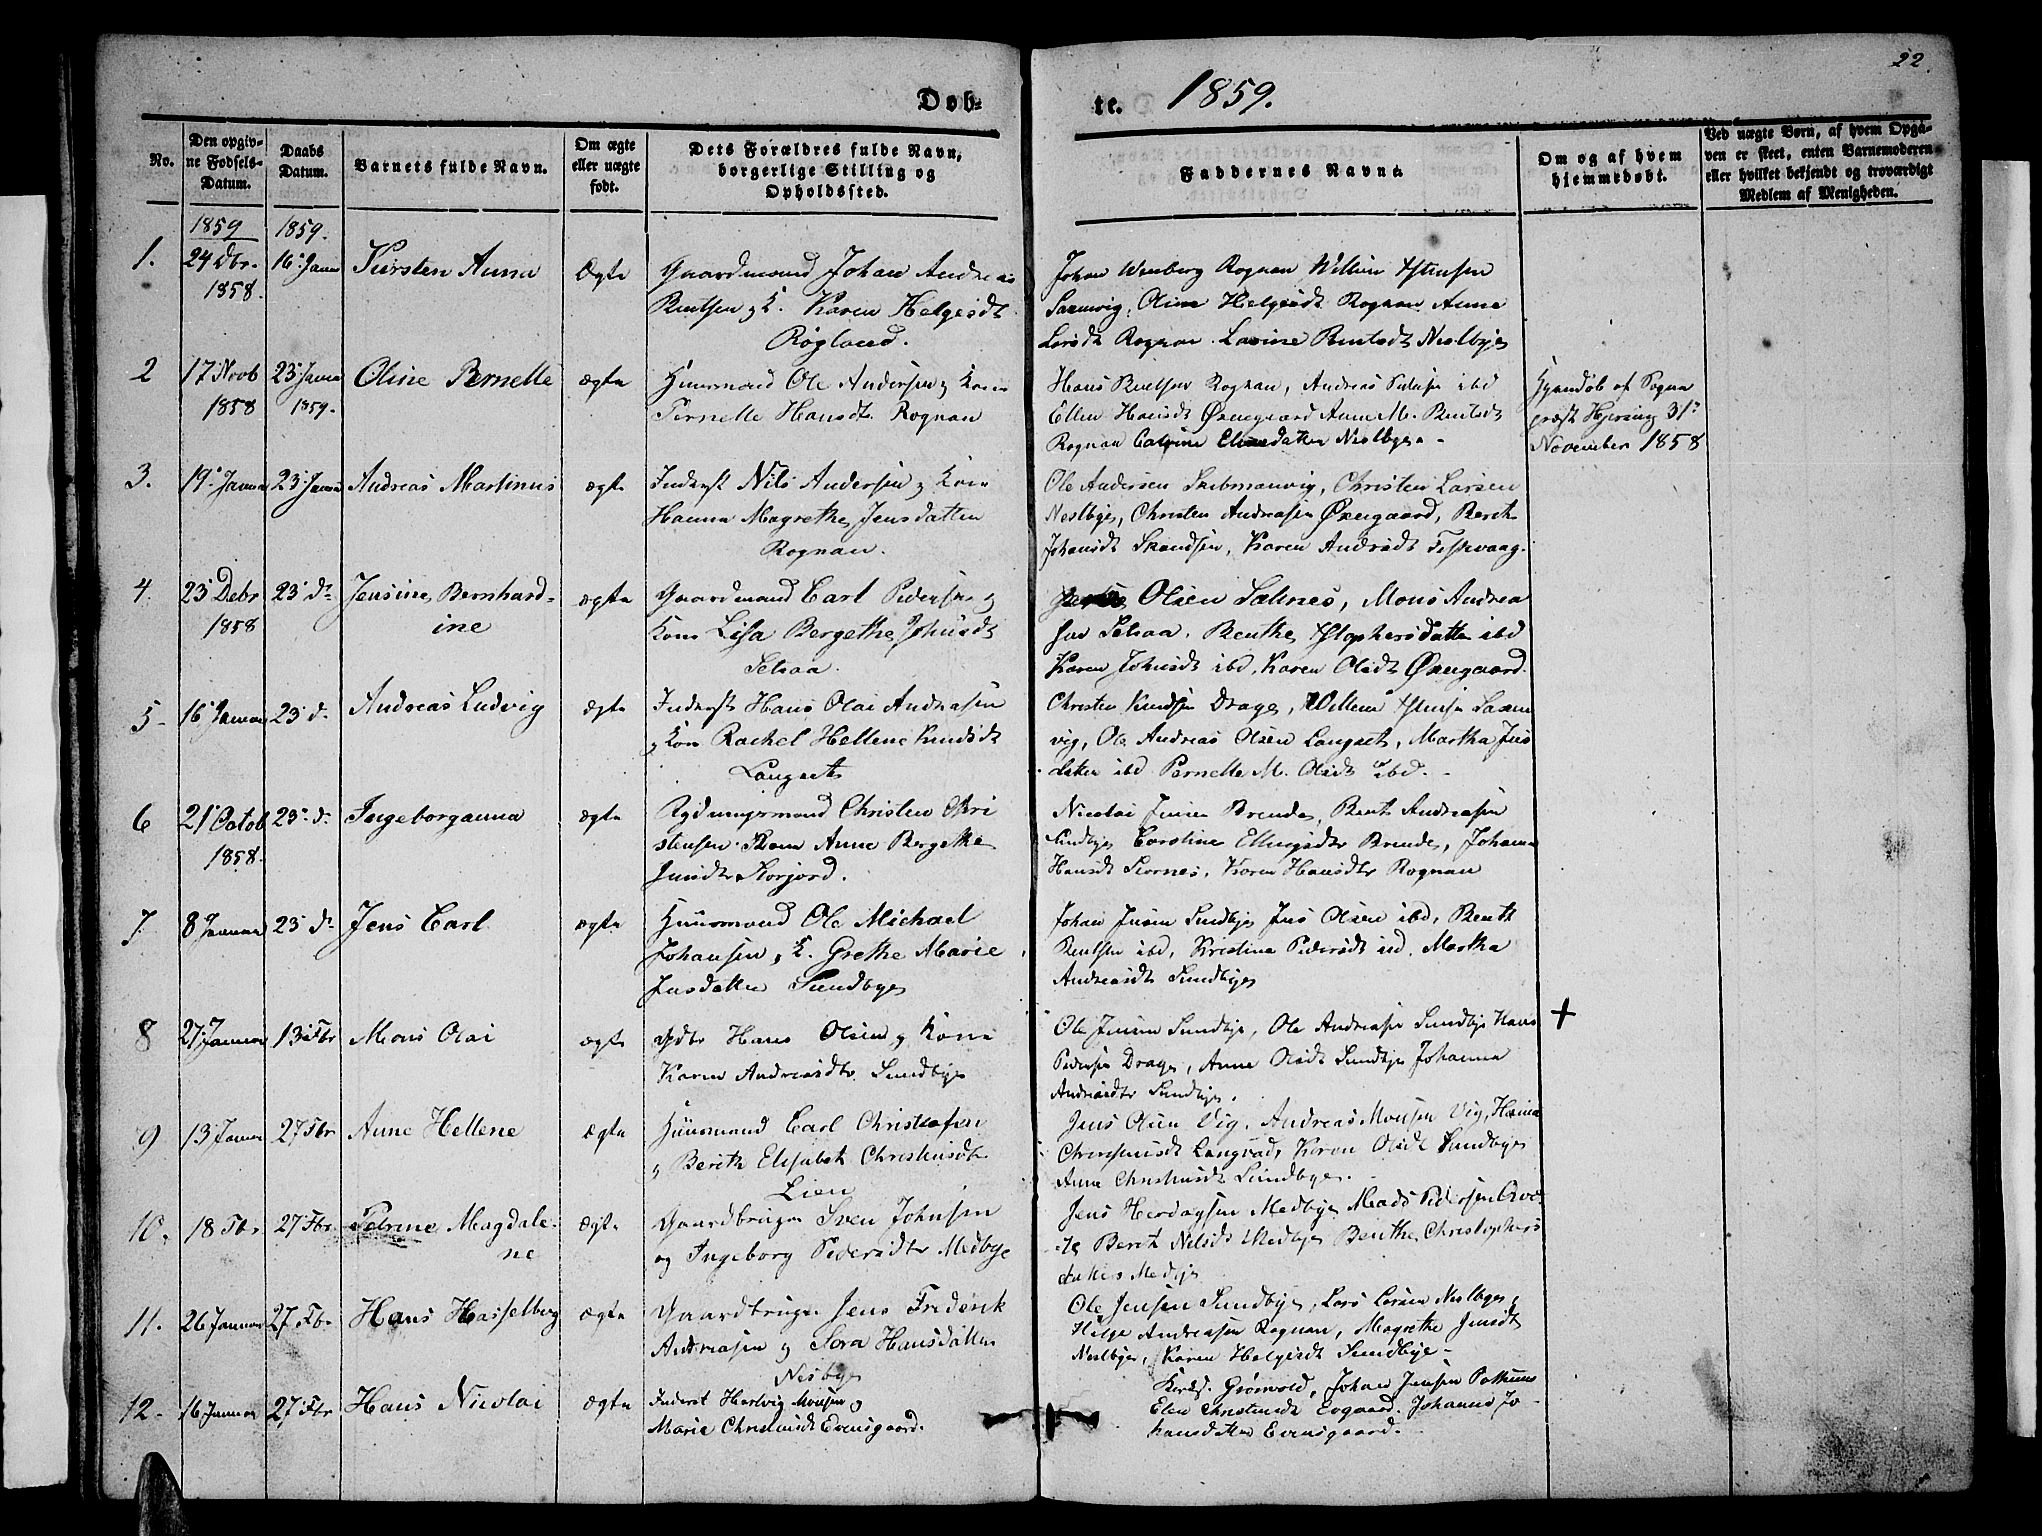 22.
Døb-
te. 1859.
No.
Den opgiv-
ne Fødsels-
Datum.
Daabs
Datum.
Barnets fulde Navn.
Om ægte
eller uægte
født.
Dets Forældres fulde Navn,
borgerlige Stilling og
Opholdssted.
Faddernes Navne.
Om og af hvem
hjemmedøbt.
Ved uægte Børn, af hvem Opga-
ven er skeet, enten Barnemoderen
eller hvilket bekjendt og troværdigt
Medlem af Menigheden.
1859 1859.
1. 24 Dbr. 16 Janu Kirsten Anna Ægte Gaardmand Johan Andreas
1858.
Bentsen & K. Karen Helgesdt
Røgland.
Johan Wenberg Rognan Willum
Saxenvig, Oline Helgesdt Rognan Anne
Larsdt Rognan Lavine Bentsdt Nestbye
2 17 Novb 23 Janu Oline Pernelle ægte Huusmand Ole Andersen & Kone
1858 1859.
Pernelle Hansdt. Rognan
Hans Bentsen Rognan, Andreas Peders ibd
Ellen Hansdt Øxengaard Anne M. Bentsdt
Rognan datter Nestbye.
af Sogne
præst Hjersing 31
November 1858
3. 19 Janua 23 Janu Andreas Martinus ægte Inderst Nils Andersen & Kone
Hanna Magrethe Jensdatter
Rognan.
Ole Andersen Skibmanvig, Christen Larsen
Nestbye, Christen Andreasen Øxengaard, Berit
Johansdt Karen Andrsdt
4 23 Debr 23 d. Jensine Bernhard-
1858 ine
ægte Gaardmand Carl Pedersen &
Kone Lisa Bergethe Johnsdt
Setsaa.
Olsen Saltnes, Mons Andrea
sen Setsaa, Benthe datter ibd
Karen Johnsdt ibd, Karen Olsdt Øxengaard.
5. 16 Januar 23 d. Andreas Ludvig ægte Inderst Hans Olai Andreasen
& Kone Rachel Hellene Knudsdt
Langset
Christen Knudsen Drage, Willum Saxen
vig, Ole Andreas Olsen Langset, Martha Jens
datter ibd Pernelle M. Olsdt ibd.
6 21 Octob 23 d. Ingeborganna ægte Rydningsmand Christen Chri
1858.
stensen Kone Anne Bergethe
Jensdtr Storjord.
Nicolai Jensen Brende, Bent Andreasen
Sundbye Caroline Ellingsdtr Brende, Johanna
Hansdt Karen Hansdtr Rognan
7 8 Januar 23 d. Jens Carl ægte Huusmand Ole Michael
Johansen, K. Grethe Marie
Jensdatter Sundbye
Johan Jensen Sundbye Jens Olsen ibd, Benth
Bentsen ibd, Kristina Pedersdt ibd, Martha
Andreasdt Sundbye
8 27 Januar 13 Fbr Mons Olai ægte Hans Olsen & Kone
Karen Andreasdtr. Sundbye
Ole Jensen Sundbye, Ole Andreasen Sundbye Hans
Pedersen Drage, Anne Olsdt Sundbye Johanna
Andreasdtr Sundbye.
+
9 13 Januar 27 Fbr Anne Hellene ægte Huusmand Carl Christofen
& Berith Elisabeth Christensdt.
Lien
Jens Olsen Vig, Andreas Monsen Vig, Hanna
Christensdt Langsæd, Karen Olsdt Sundbye
Anne Christensdt Sundbye.
10. 18 Fbr 27 Fbr. Petrine Magdale-
ne
ægte Gaardbruger Sven Johnsen
og Ingeborg Pedersdtr Medbye
Jens Herdagsen Medbye Mads Pedersen
Berit Nilsdt Medbye Benthe Christophers
datter Medbye
11. 26 Januar 27 Fb. Hans Hasselberg ægte Gaardbruger Jens Frederik
Andreasen & Sora Hansdatter
Nesbye
Ole Jensen Sundbye, Lars Larsen Nestbye,
Helge Andreasen Rognan, Magrethe Jensdt
Nestbye, Karen Helgesdt Sundbye-
12. 16 Januar 27 Fbr Hans Nicolai ægte Inderst Hartvig Monsen &
Marie Christensdt Evensgaard.
Kirks. Grønvold, Johan Jensen
Elen Christensdt Johanna Jo-
hansdatter Evensgaard.